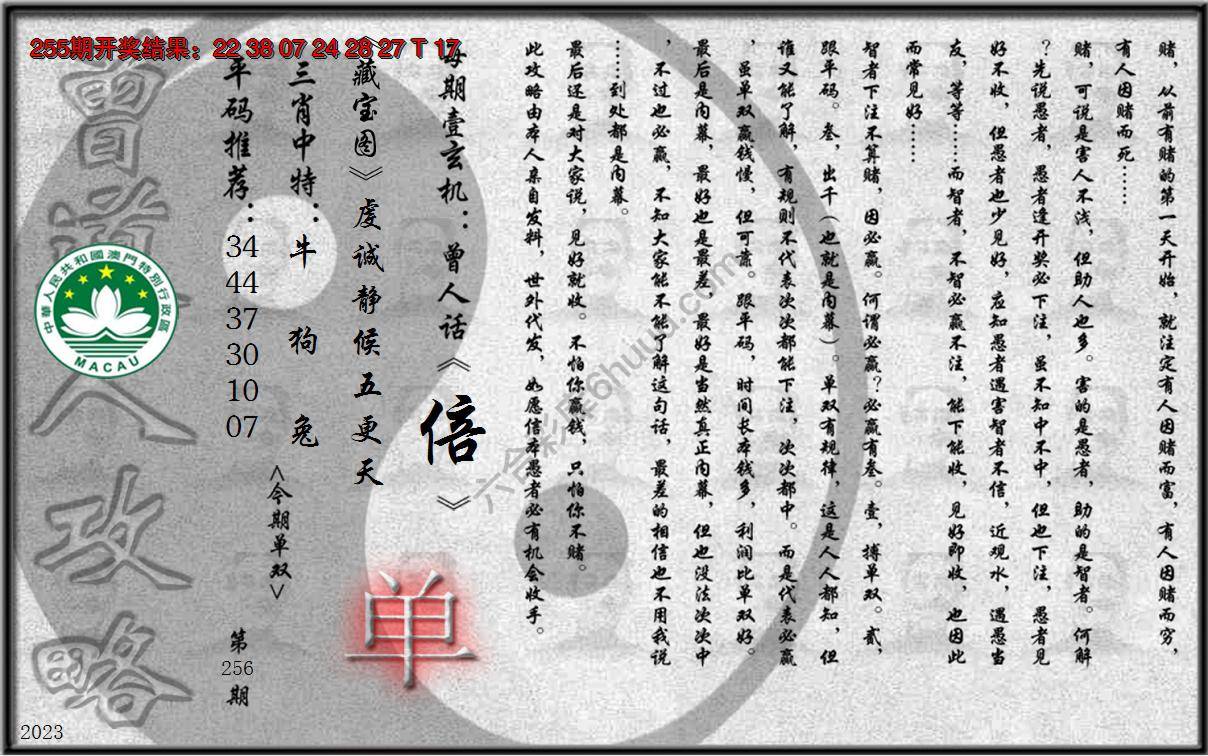 255期开奖结果：22 38 07 24 28 27 T 17
赌，从前有赌的第一天开始，就注定有人因赌而富，有人因赌而穷，
有人因赌而死……
赌，可说是害人不浅，但助人也多。害的是愚者，助的是智者。何解
？先说愚者，愚者逢开奖必下注，虽不知中不中，但也下注，愚者见
好不收，但愚者也少见好，应知愚者遇害智者不信，近观水，遇愚当
友，等等……而智者，不智必赢不注，能下能收，见好即收，也因此
而常见好……
智者下注不算赌，因必赢。何谓必赢？必赢有叁。壹，搏单双。贰，
跟平码。叁，出千（也就是内幕）。单双有规律，这是人人都知，但
谁又能了解，有规则不代表次次都能下注，次次都中。而是代表必赢
，虽单双赢钱慢，但可靠。跟平码，时间长本钱多，利润比单双好。
最后是内幕，最好也是最差，最好是当然真正内幕，但也没法次次中
，不过也必赢，不知大家能不能了解这句话，最差的相信也不用我说
……到处都是内幕。
最后还是对大家说，见好就收。不怕你赢钱，只怕你不赌。
此攻略由本人亲自发料，世外代发，如愿信本愚者必有机会收手。
每期壹玄机：曾人话《倍》
《藏宝图》虔诚静候五更天
三肖中特：牛 狗 兔
<今期单双>
单
平码推荐：
34
44
37
30
10
07
第
256
期
曾道人攻略
中華人民共和國澳門特別行政區
MACAU
六合彩库6huuu.com
2023